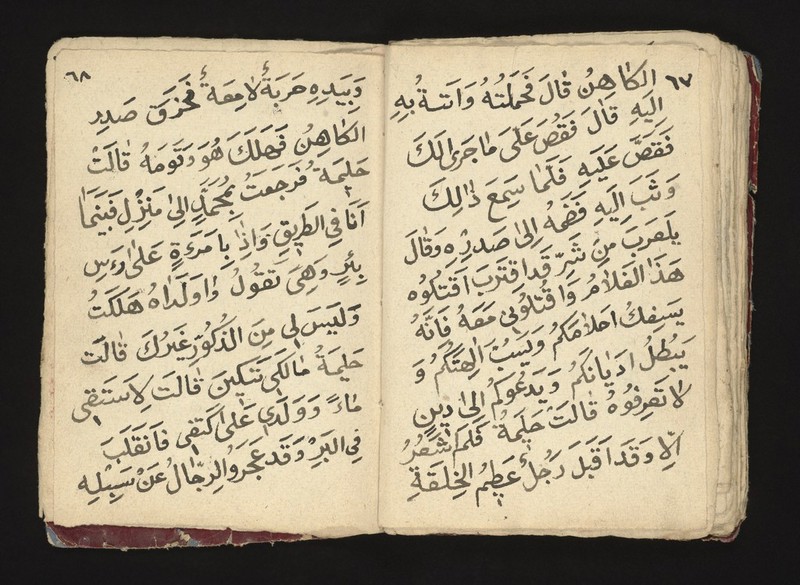 ٦٧
الكاهن قال فحملته واتت به
اليه قال فقص على ما جرى لك
فقص عليه فلما سمع ذالك
وثب اليه فضمه الى صدره وقال
يلعرب من شر قد اقترب اقتلوه
هذا الغلام واقتلونى معه فانه
يسفك احلامكم ويسب الهتكم و
يبطل اديانكم ويدعوكم الى دين
لا تعرفوه قالت حليمة فلم اشعر
الا وقد اقبل رجل عظيم الخلقة
٦٨
وبيده حربة لامعة فخرق صدر
الكاهن فهلك هو وقومه قالت
حليمة فرجعت بمحمد الى منزل فبينما
انا فى الطريق واذا بامرءة على راس
بئر وهى تقول وا ولداه هلكت
وليس لى من الذكور غيرك قالت
حليمة مالكى تبكين قالت لاستقى
ماء وولدى على كتفى فانقلب
فى البئر وقد عجزو الرجال عن سبيله